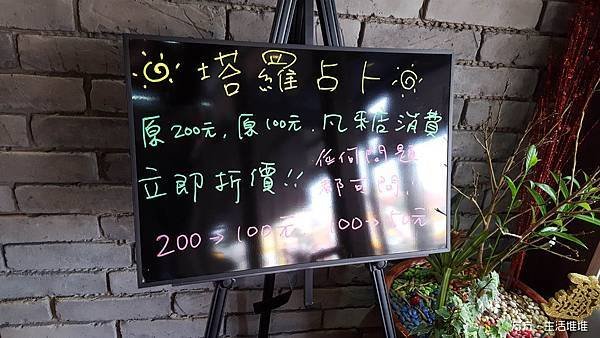 塔羅占卜
原200元,原100元,凡來店消費
立即折價!!
任何問題
都可問
200→100元 100→50元
生活堆堆